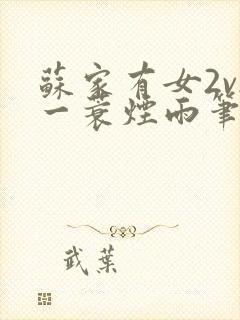 蘇家有女2v
一蓑煙雨筆
武葉